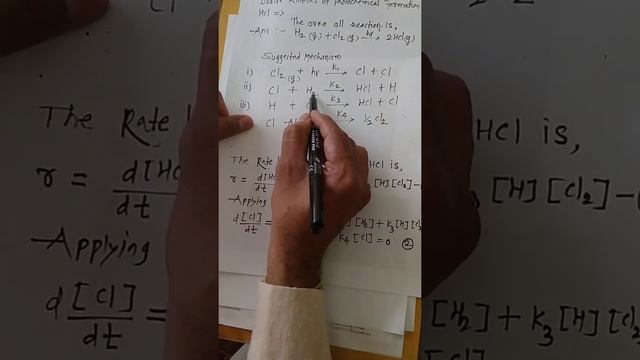 Derive Kinetics of photochemical formation
HCl =>
The over all reaction is,
Ans :- H₂ (g) + Cl₂ (g) hν→ 2HCl(g)
Suggested Mechanism
i) Cl₂(g) + hν K₁→ Cl + Cl
ii) Cl + H₂ K₂→ HCl + H
iii) H + K₃→ HCl + Cl
Cl K₄→ ½ Cl₂
The Rate HCl is,
r = d[HC / dt [H][Cl₂] —
Applying
d[Cl]/dt = [H₂] + K₃[H][Cl₂
K₄[Cl] = 0 ②
HCl is,
The Rate
r = d[HC / dt [H][Cl₂]-(
Applying
d[Cl]/dt = [H₂] + K₃[H][Cl₂